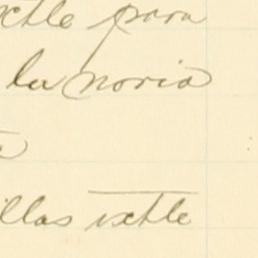 ixtle para
la noria
illas ixtle